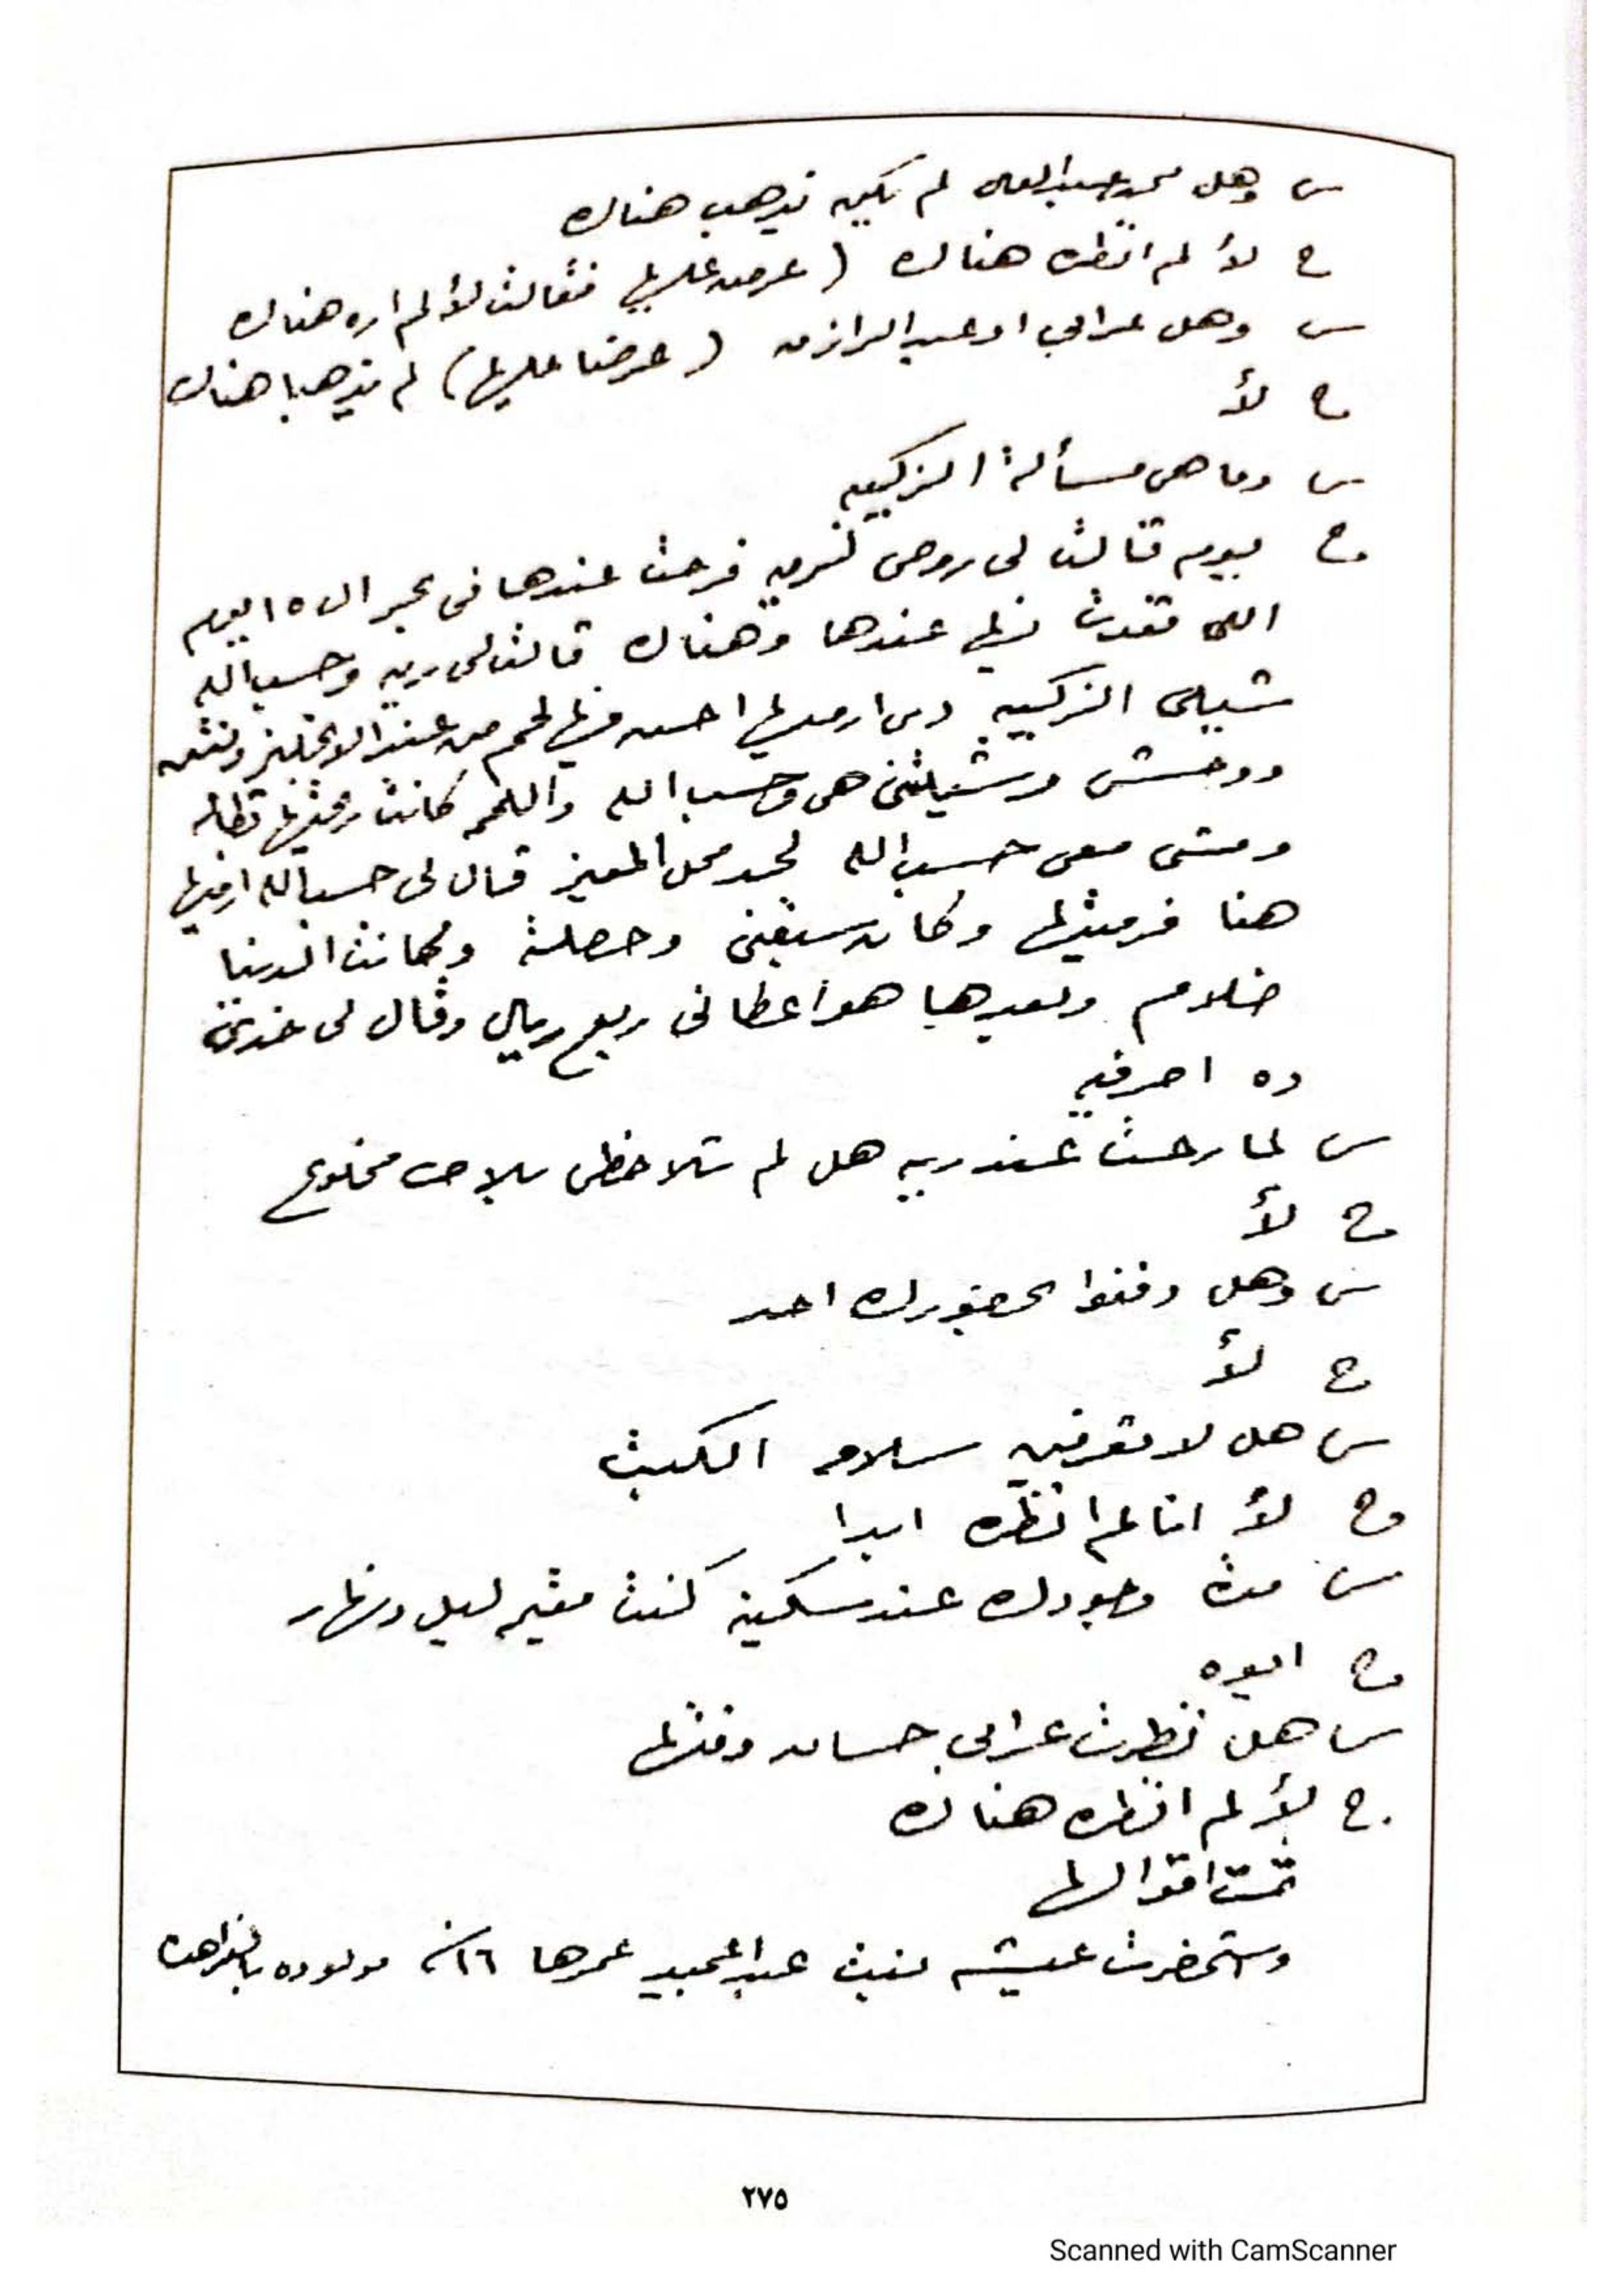 س وهل محمد عبد العال لم يكن يذهب هناك
ج لأ لم انظره هناك ( عرض عليها فقالت لأ لم اره هناك
س وهل عرابي او عبد الرازق ( عرضا عليها ) لم يذهبا هناك
ج لأ
س وما هى مسألة الزكيبه
ج يوم قالت لى روحى لريه فرحت عندها فى بحر ال ١٥ ايوم
اللى قعدت فيهم عندها وهناك قالت لى ريه وحسب الله
شيلى الزكيبه دى ارميها احسن فيها لحم من عند الانجليز ونتن
ووحش وشيلتنى هى وحسب الله واللحم كانت ريحتها بطاله
ومشى معى حسب الله لحد محل المعيز قال لى حسب الله ارميها
هنا فرميتها وكان سبقنى وحصلته وكانت الدنيا
ضلام وبعدها هو اعطانى ربع ريال وقال لى خدى
ده اصرفيه
س لما رحت عند ريه هل لم تلاحظى بلاط مخلوع
ج لأ
س وهل دفنوا بحضورك احد
ج لأ
س هل لا تعرفين سلامه الكبت
ج لأ انا لم انظره ابدا
س مدة وجودك عند سكينه كنت مقيم ليل ونهار
ج ايوه
س هل نظرت عرابى حسان وقتها
ج لأ لم انظره هناك
تمت اقوالها
وستحضرت عيشه بنت عبد المجيد عمرها ١٦ سنه مولوده
٢٧٥
Scanned with CamScanner